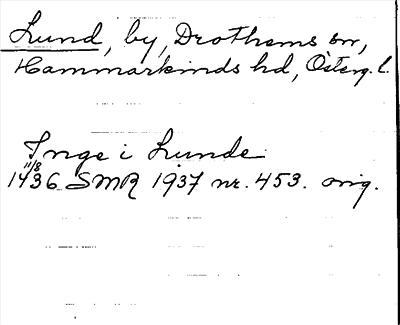 Lund, by, Drothems sn,
Hammarkinds hd, Österg. l.
Inge i Lunde
11/8
1436 SMR 1937 nr. 453. orig.